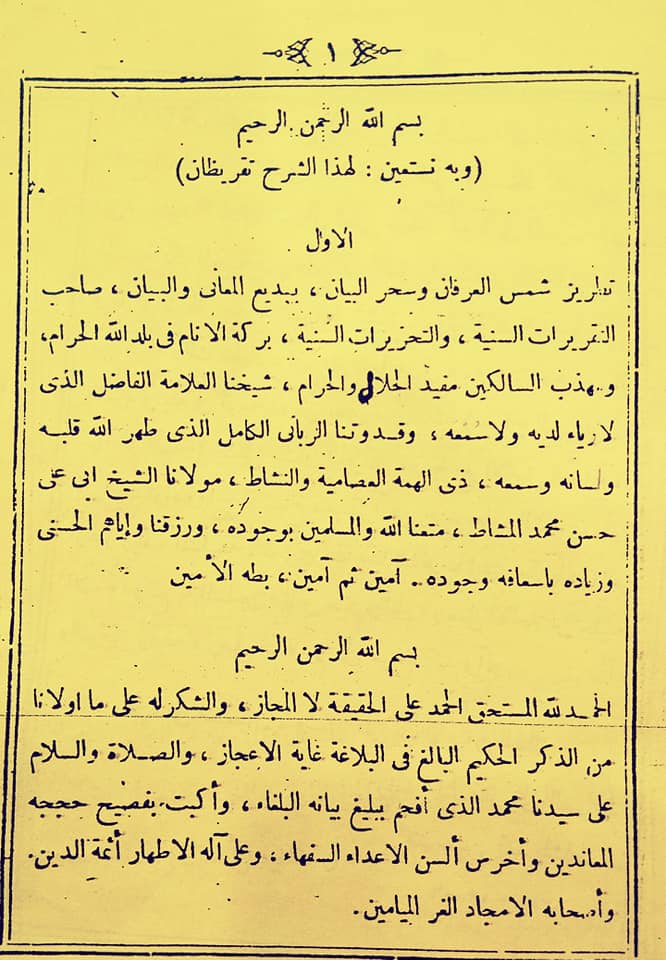 ١
بسم الله الرحمن الرحيم
(وبه نستعين : لهذا الشرح تقريظان)
الاول
تطريز شمس العرفان وسحر البيان ، ببديع المعانى والبيان ، صاحب
التقريرات السنية ، والتحريرات السنية ، بركة الانام فى بلد الله الحرام،
ومهذب السالكين مفيد الحلال والحرام ، شيخنا العلامة الفاضل الذى
لارياء لديه ولاسمعه ، وقدوتنا الربانى الكامل الذى طهر الله قلبه
ولسانه وسمعه ، ذى الهمة العصامية والنشاط ، مولانا الشيخ ابى على
حسن محمد المشاط ، متعنا الله والمسلمين بوجوده ، ورزقنا وإياهم الحسنى
وزياده باسعافه وجوده . آمين ثم آمين ، بطه الأمين
بسم الله الرحمن الرحيم
الحمد لله المستحق الحمد على الحقيقة لا المجاز ، والشكر له على ما اولانا
من الذكر الحكيم البالغ فى البلاغة غاية الاعجاز ، والصلاة والسلام
على سيدنا محمد الذى أفحم ببليغ بيانه البلغاء ، وأكبت بفصيح حججه
المعاندين وأخرس ألسن الاعداء السفهاء ، وعلى آله الاطهار أئمة الدين.
وأصحابه الامجاد الغر الميامين.